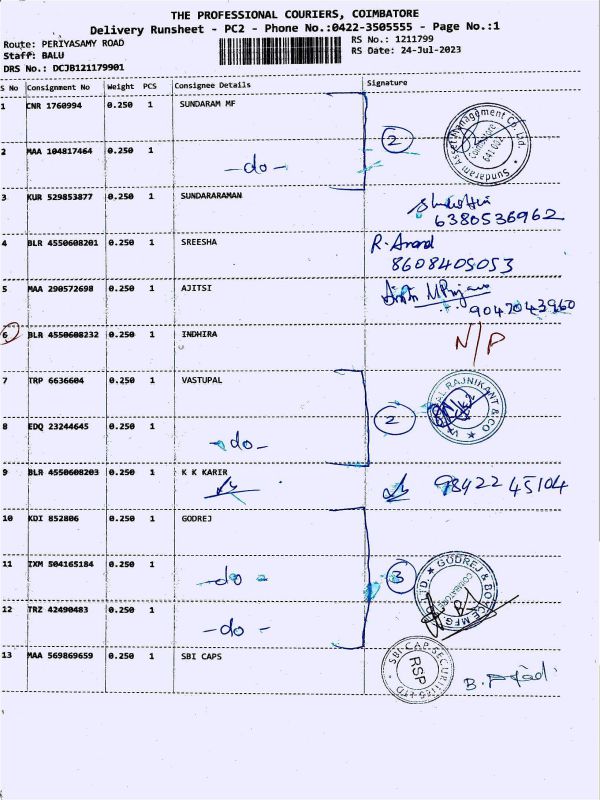 THE PROFESSIONAL COURIERS, COIMBATORE
Delivery Runsheet - PC2 - Phone No.:0422-3505555 - Page No.:1
Route: PERIYASAMY ROAD
RS No.: 1211799
Staff: BALU
RS Date: 24-Jul-2023
DRS No.: DCJB121179901
S No Consignment No Weight PCS Consignee Details Signature
1 CNR 1760994 0.250 1 SUNDARAM MF
2
Sundaram Asset Management Co. Ltd.
Coimbatore
641 002
2 MAA 104817464 0.250 1 -do-
3 KUR 529853877 0.250 1 SUNDARARAMAN
6380536962
4 BLR 4550608201 0.250 1 SREESHA R. Anand
8608405053
5 MAA 290572698 0.250 1 AJITSI
9047043960
6 BLR 4550608232 0.250 1 INDHIRA N/P
7 TRP 6636604 0.250 1 VASTUPAL
2
RAJNIKANT & CO
8 EDQ 23244645 0.250 1 -do-
9 BLR 4550608203 0.250 1 K K KARIR 98422 45104
10 KDI 852806 0.250 1 GODREJ
11 IXM 504165184 0.250 1 -do-
3
GODREJ & BOYCE MFG. LTD.
COIMBATORE
12 TRZ 42490483 0.250 1 -do-
13 MAA 569869659 0.250 1 SBI CAPS
SBI CAP SECURITIES LTD
RSP
B.